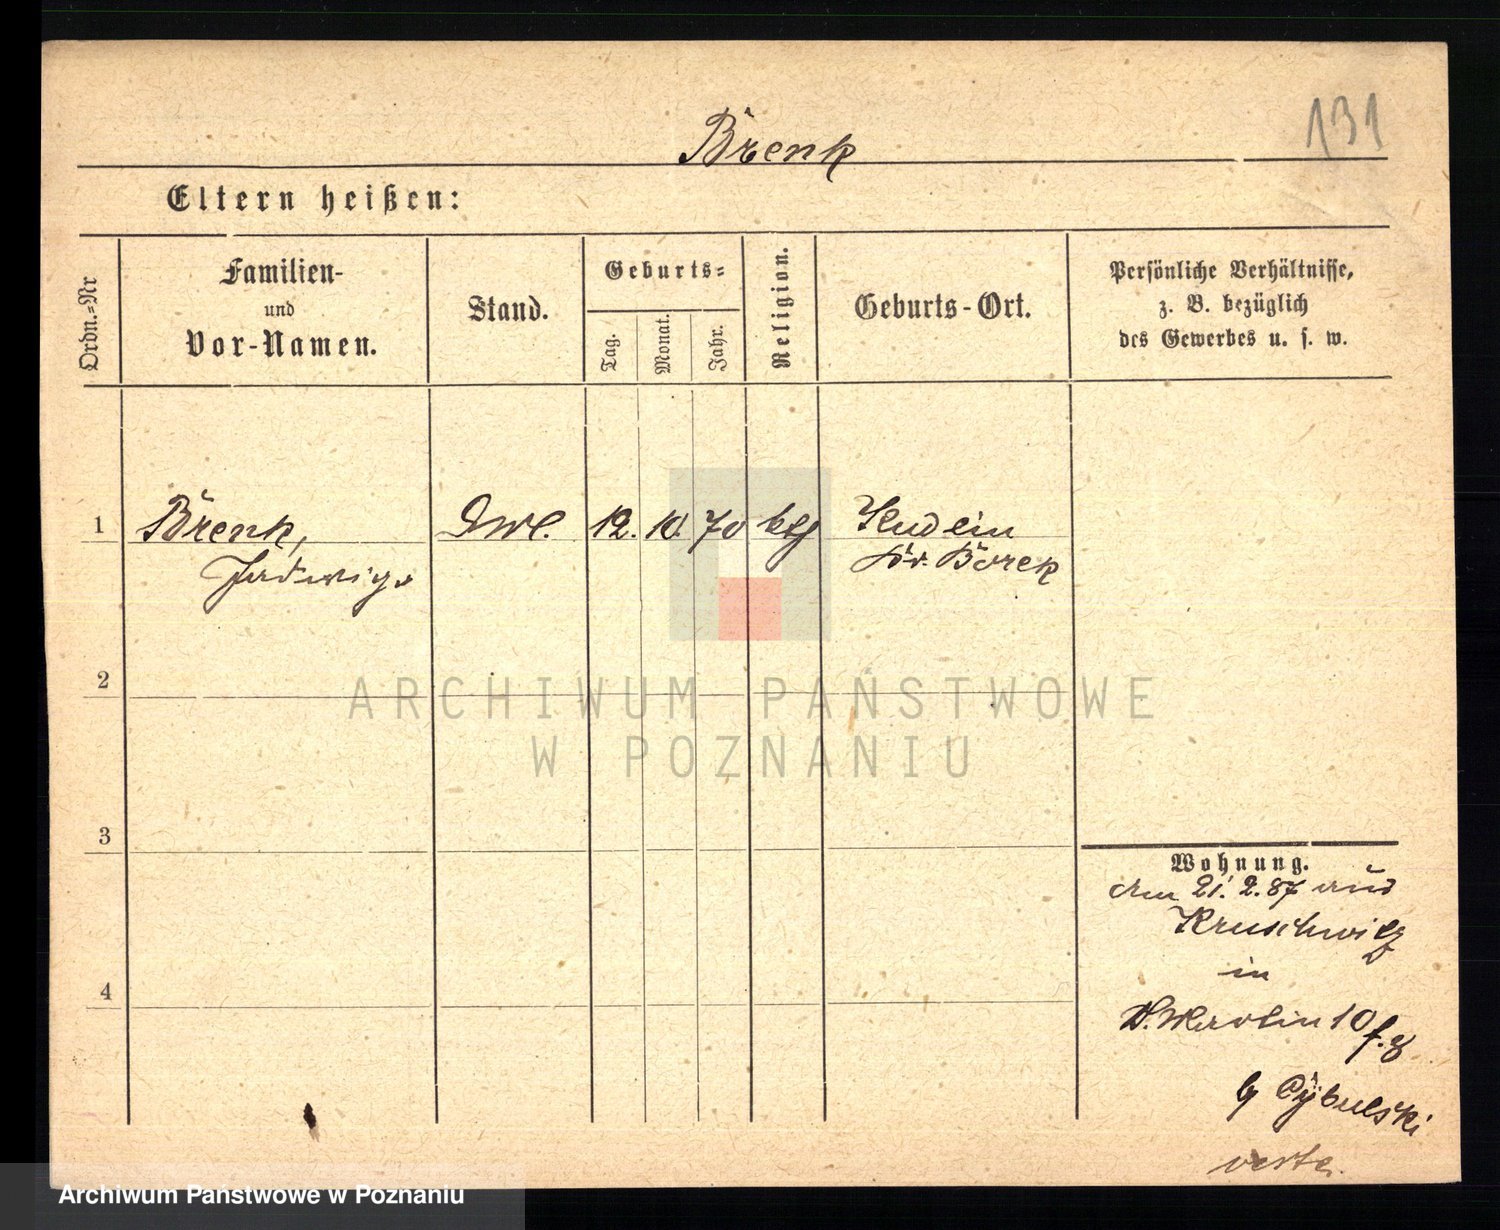 131
Brenk
Eltern heißen:
Ordn.-Nr
Familien-
und
Vor-Namen.
Stand.
Geburts-
Tag.
Monat.
Jahr.
Religion.
Geburts-Ort.
Persönliche Verhältnisse,
z. B. bezüglich
des Gewerbes u. s. w.
1
Brenk,
Jadwiga
12. 10. 70
kth
Kr. Borek
2
3
4
Wohnung.
21. 2. 87 aus
Kruschwitz
in
St. Martin 10
b Cybulski
verte.
ARCHIWUM PAŃSTWOWE
W POZNANIU
Archiwum Państwowe w Poznaniu